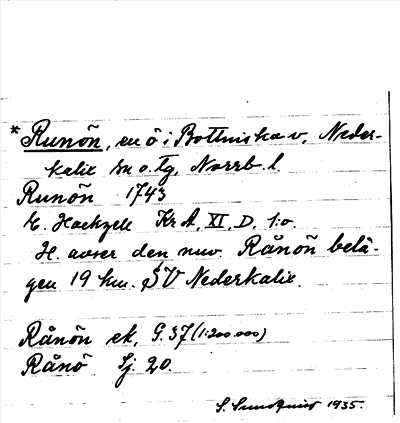 * Runön, en ö i Bottniska v., Neder-
kalix sn o. tg, Norrb. l.
Runön 1743
E. Hackzell KrA, XI, D, 1:o.
H. avser den nuv. Rånön belä-
gen 19 km. SV Nederkalix.
Rånön ek, G. 37 (1:200 000)
Rånö Sj. 20.
S. Sundqvist 1935.